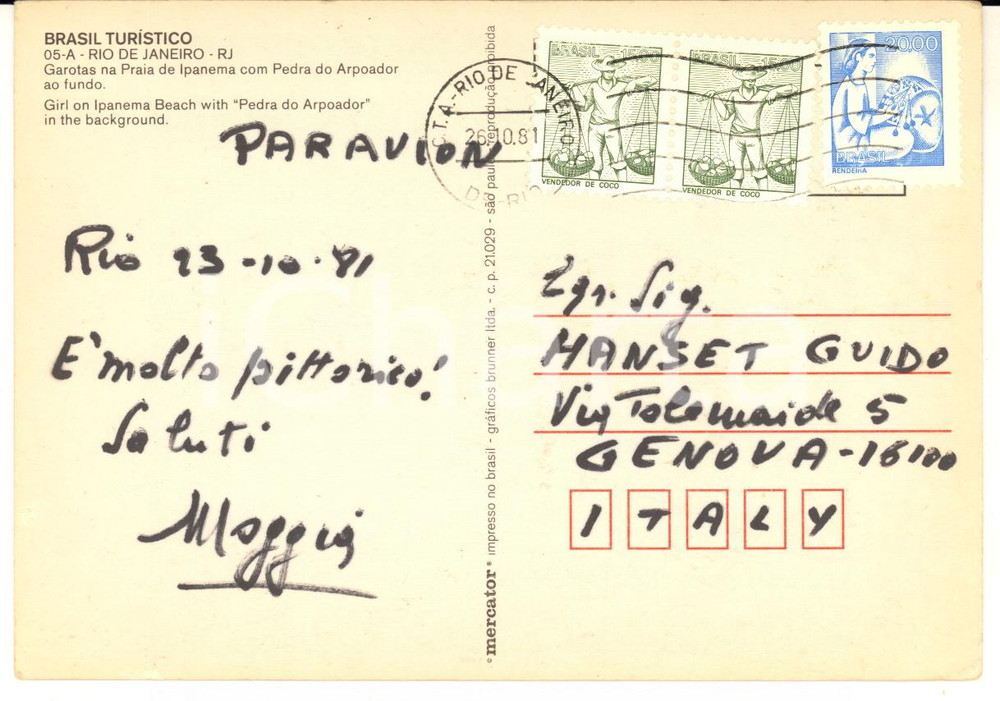 BRASIL TURÍSTICO
05-A - RIO DE JANEIRO - RJ
Garotas na Praia de Ipanema com Pedra do Arpoador
ao fundo.
Girl on Ipanema Beach with “Pedra do Arpoador”
in the background.
PARAVION
Rio 23-10-81
E' molto pittorico!
Saluti
C.T.A.-RIO DE JANEIRO
26.10.81
BRASIL 15,00
VENDEDOR DE COCO
BRASIL 15,00
VENDEDOR DE COCO
20,00
BRASIL
RENDEIRA
Egr. Sig.
MANSET GUIDO
Via Tolemaide 5
GENOVA-16100
ITALY
mercator® impresso no brasil - gráficos brunner ltda. - c. p. 21.029 - são paulo reprodução proibida